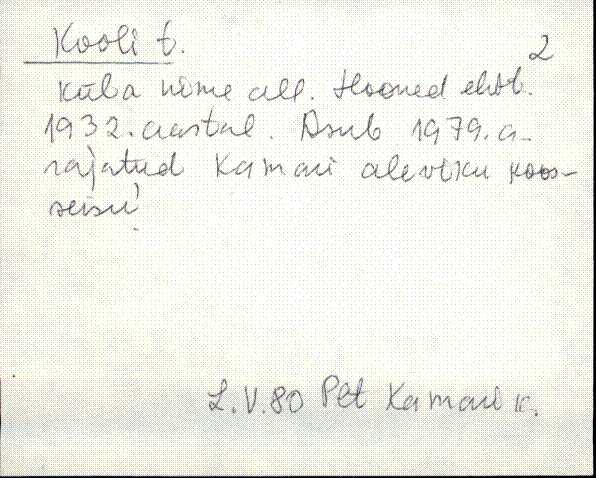 Kooli t.
2
küla nime all. Hooned ehit.
1932. aastal. Asub 1979. a.
rajatud Kamari aleviku koos-
seisu!
L.V.80 Plt Kamari k.